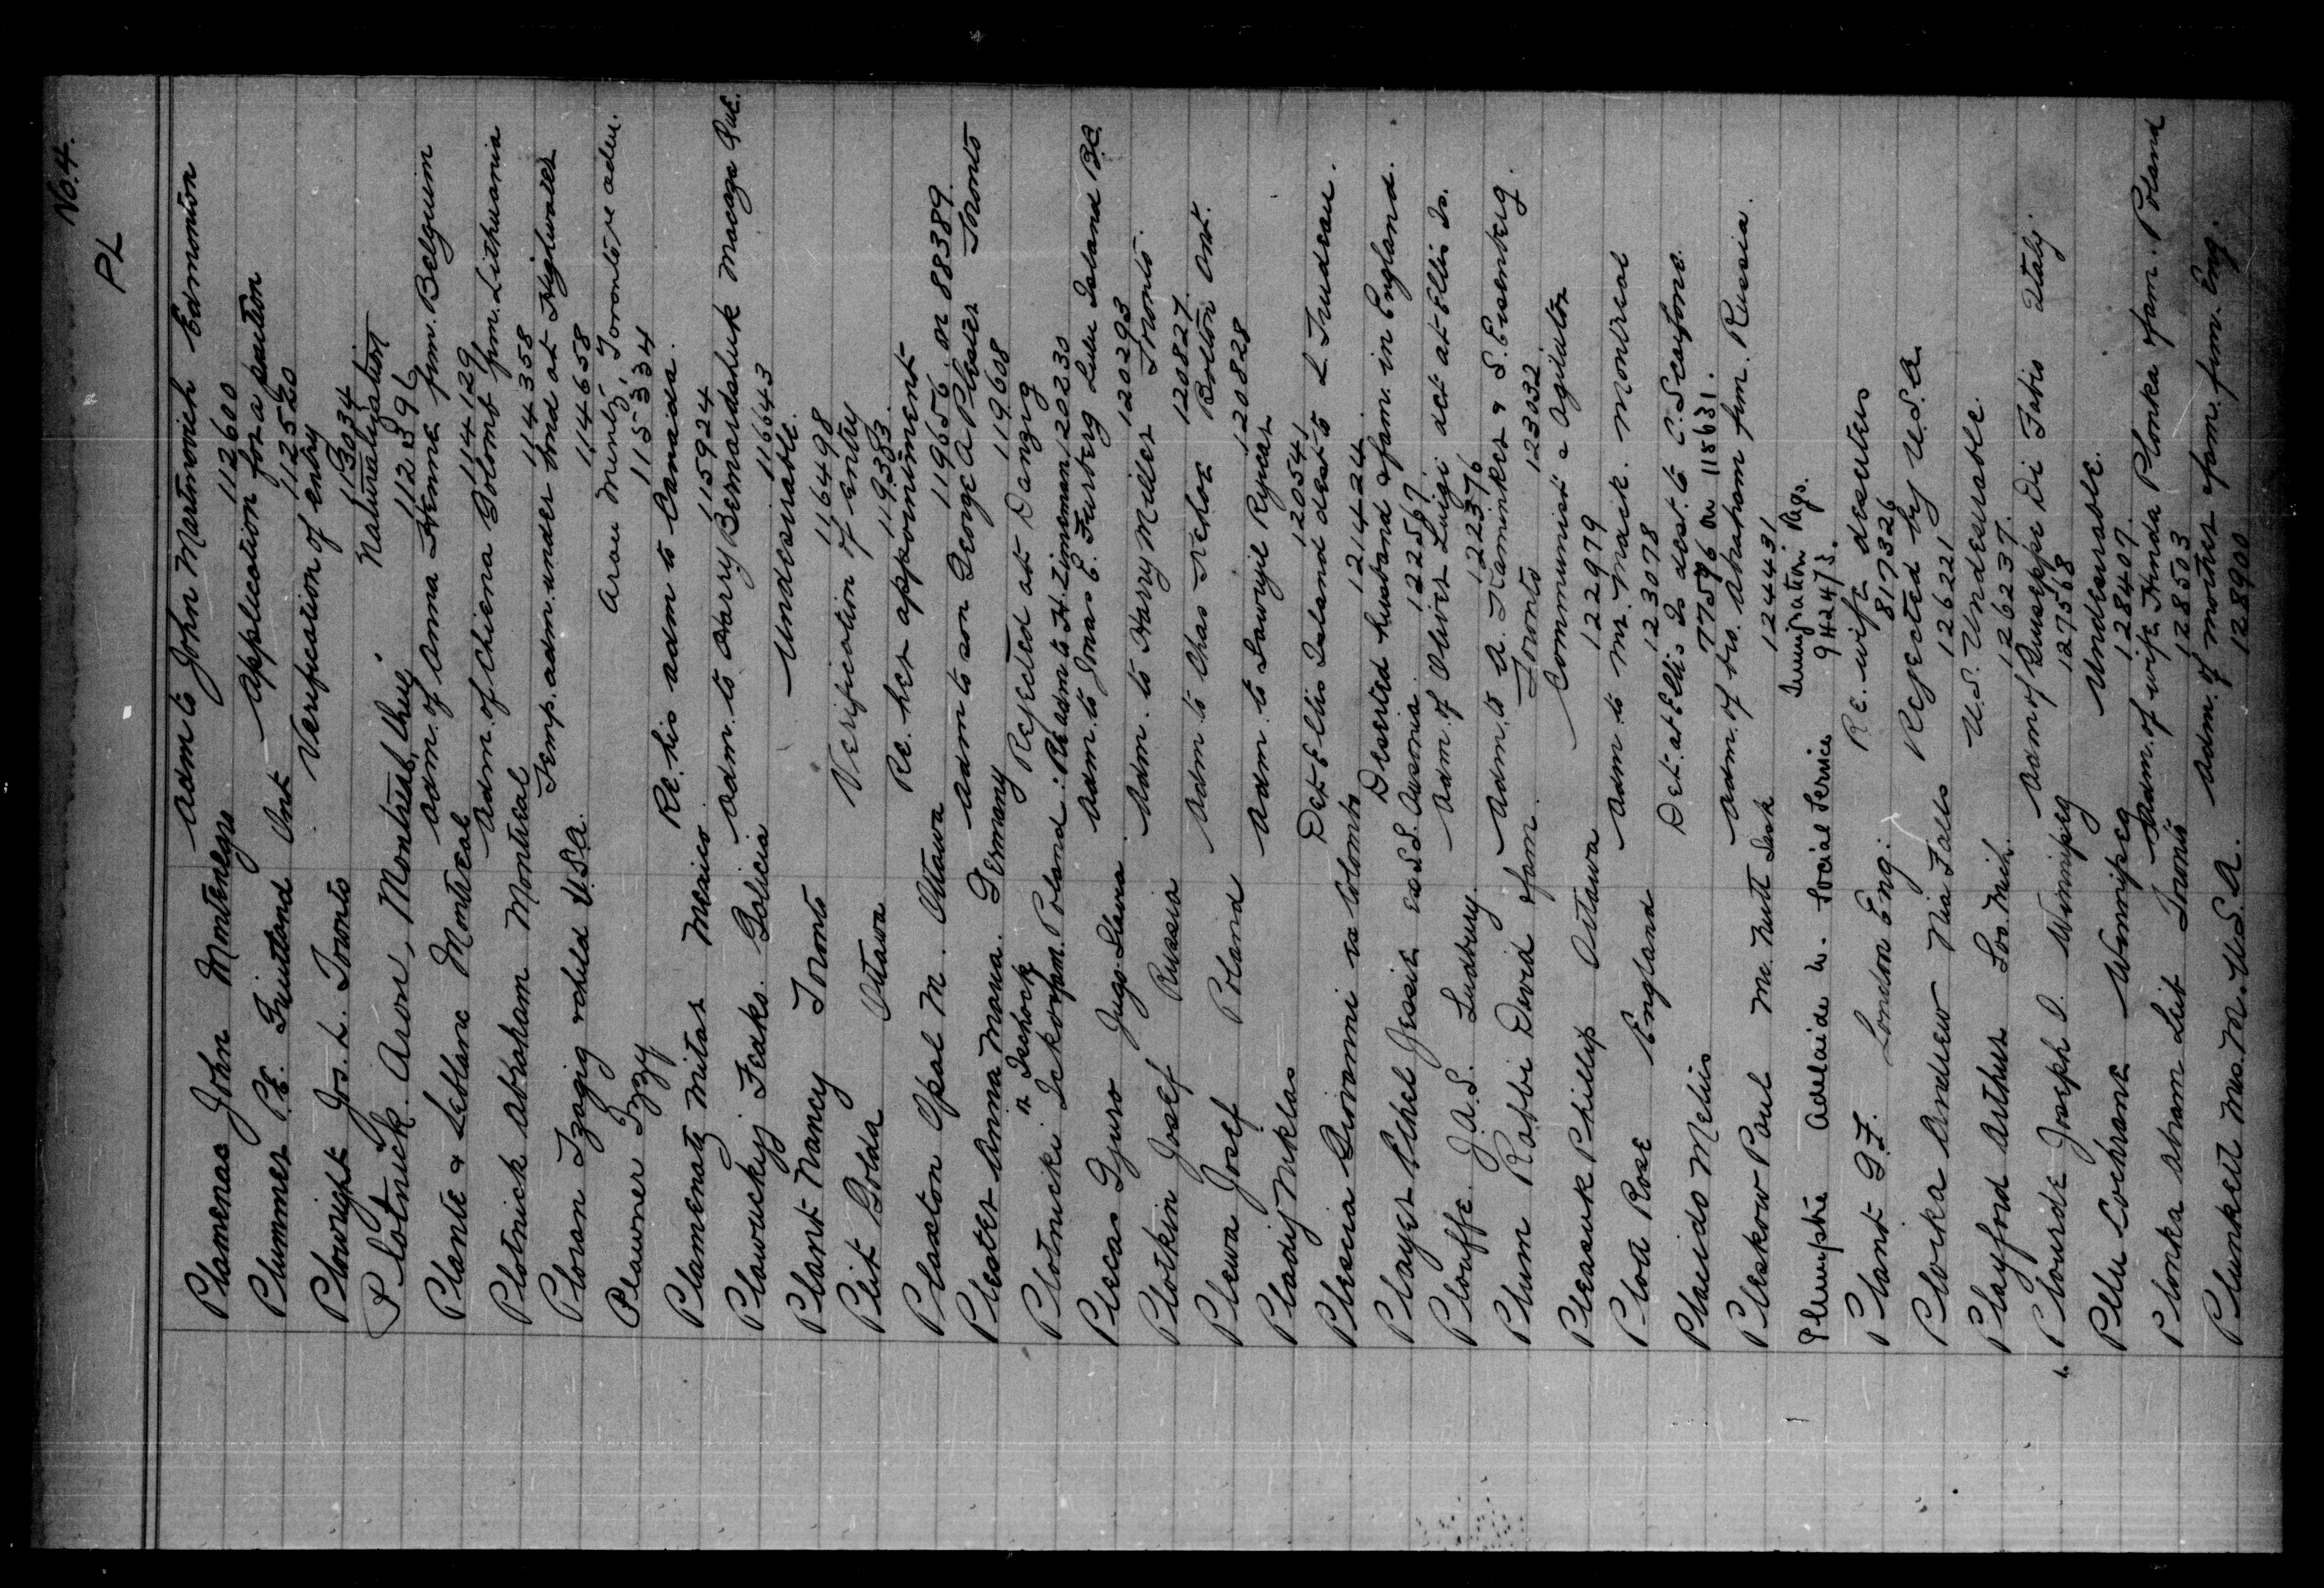 No. 4.
PL
Plamenas John Montenegro adm to John Martinovich Edmonton
112600
Plummer P.E. Fruitland Ont Application for a position
112520
Plowright Jos. L. Toronto Verification of entry
113034
Plotnick Aron, Montreal, Que. Naturalization
112396
Plante & Leblanc Montreal adm. of Anna Henne frm. Belguim
114129
Plotnick Abraham Montreal adm. of Chiena Golomb frm. Lithuania
114358
Ploran Izagig & child U.S.A. Temp. adm. under bond at Highwater
114658
Plawner Izzy Aron Mentz, Toronto re adm.
115334
Plamenatz Mitar Mexico Re. his adm to Canada.
115924
Plawuckyj Feaks. Galicia adm. to Harry Bernardshuk Macaza Que.
116643
Plant Nancy Toronto Undesirable.
116498
Plit Golda Ottawa Verification of entry
119383.
Plaxton Opal M. Ottawa Re. her appointment
119656. or 88389.
Plester Anna Maria. Germany adm to son George A Plester Toronto
119608
Plotnicki Ickov & fam. Poland: Rejected at Danzig
Re adm to H. Zimerman 120230
Plecas Gjuro Jugo-Slavia adm. to Jonas E. Furberg Lulu Island B.C.
120293
Plotkin Josef Russia Adm. to Harry Miller Toronto.
120827.
Plewa Josef Poland Adm to Chas Trehor Bolton Ont.
120828
Pladij Miklas Adm. to Sawryil Rycar
120541
Plescia Giovanni ex Colombo Det Ellis Island dest to L. Trudeau.
121424.
Player Ethel Jessie ex S.S. Ausonia. Deserted husband & fam. in England.
122567.
Plouffe J.A.S. Sudbury. Adm. of Oliver Luigi act at Ellis Is.
122376
Plum Rabbi David & fam. Adm. to A. Kaminker & S. Eisenberg.
Toronto 123032
Pleasuk Phillip Ottawa Communist & Agitator
122979
Ploa Rose England Adm to Mr. Mack. Montreal
123078
Placido Melius Det. at Ellis Is dest. to C. Scarfone.
77596 or 115631.
Pleskow Paul McNutt Sask Adm. of bro. Abraham frm. Russia.
124431
Plumptre Adelaide W. Social Service Immigration Regs.
942473.
Plant G.F. London Eng: Re. wife deserters
817326
Plocka Andrew Nia Falls Rejected by U.S.A.
126221
Playford Arthur Soo. Mich. U.S. Undesirable.
126237.
Plourde Joseph D. Winnipeg Adm of Guiseppe Di Fabio Italy.
127568
Pllu Cochrane Winnipeg Undesirable.
128407.
Plonka Abram Leib Toronto Adm. of wife Hinda Plonka & fam. Poland
128503
Plunkett Mrs. M. U.S.A. Adm. of mother & fam. frm. Eng.
128900